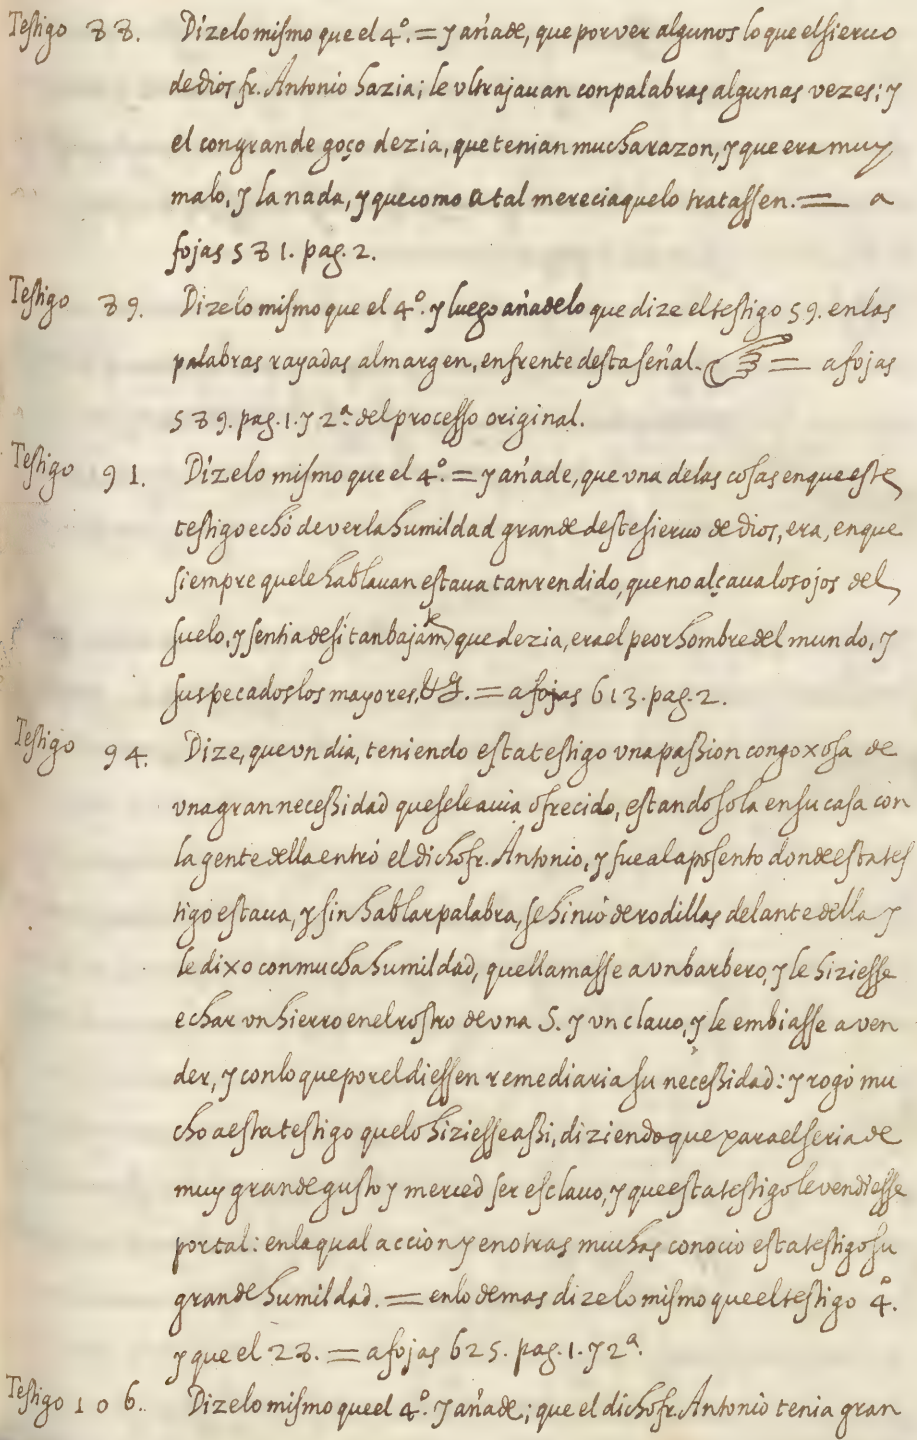 Testigo 88. Dizelo mismo que el 4º. = y añade, que por ver algunos lo que el sieruo
de Dios fr. Antonio hazia; le vltrajauan con palabras algunas vezes; y
el con grande goço dezia, que tenian mucha razon, y que era muy
malo, y la nada, y que como a tal merecia que lo tratassen. = a
fojas 581. pag. 2.
Testigo 89. Dizelo mismo que el 4º. y luego añade lo que dize el testigo 59. en las
palabras rayadas al margen, en frente desta señal. ☞ = a fojas
589. pag. 1. y 2ª. del processo original.
Testigo 91. Dizelo mismo que el 4º. = y añade, que vna de las cosas en que este
testigo echó de ver la humildad grande deste sieruo de Dios, era, en que
siempre que le hablauan estaua tan rendido, que no alçaua los ojos del
suelo, y sentia de si tan bajamte, que dezia, era el peor hombre del mundo, y
sus pecados los mayores, &c. = a fojas 613. pag. 2.
Testigo 94. Dize, que vn dia, teniendo esta testigo vna passion congoxosa de
vna gran necessidad que se le auia ofrecido, estando sola en su casa con
la gente della entró el dicho fr. Antonio, y fue al aposento donde esta tes
tigo estaua, y sin hablar palabra, se hincó de rodillas delante della y
le dixo con mucha humildad, que llamasse a vn barbero, y le hiziesse
echar vn hierro en el rostro de vna S. y vn clauo, y le embiasse a ven
der, y con lo que por el diessen remediaria su necessidad: y rogó mu
cho a esta testigo que lo hiziesse assi, diziendo que para el seria de
muy grande gusto y merced ser esclauo, y que esta testigo le vendiesse
por tal: en la qual accion y en otras muchas conocio esta testigo su
grande humildad. = en lo demas dize lo mismo que el testigo 4º.
y que el 28. = a fojas 625. pag. 1. y 2ª.
Testigo 106. Dizelo mismo que el 4º. y añade; que el dicho fr. Antonio tenia gran